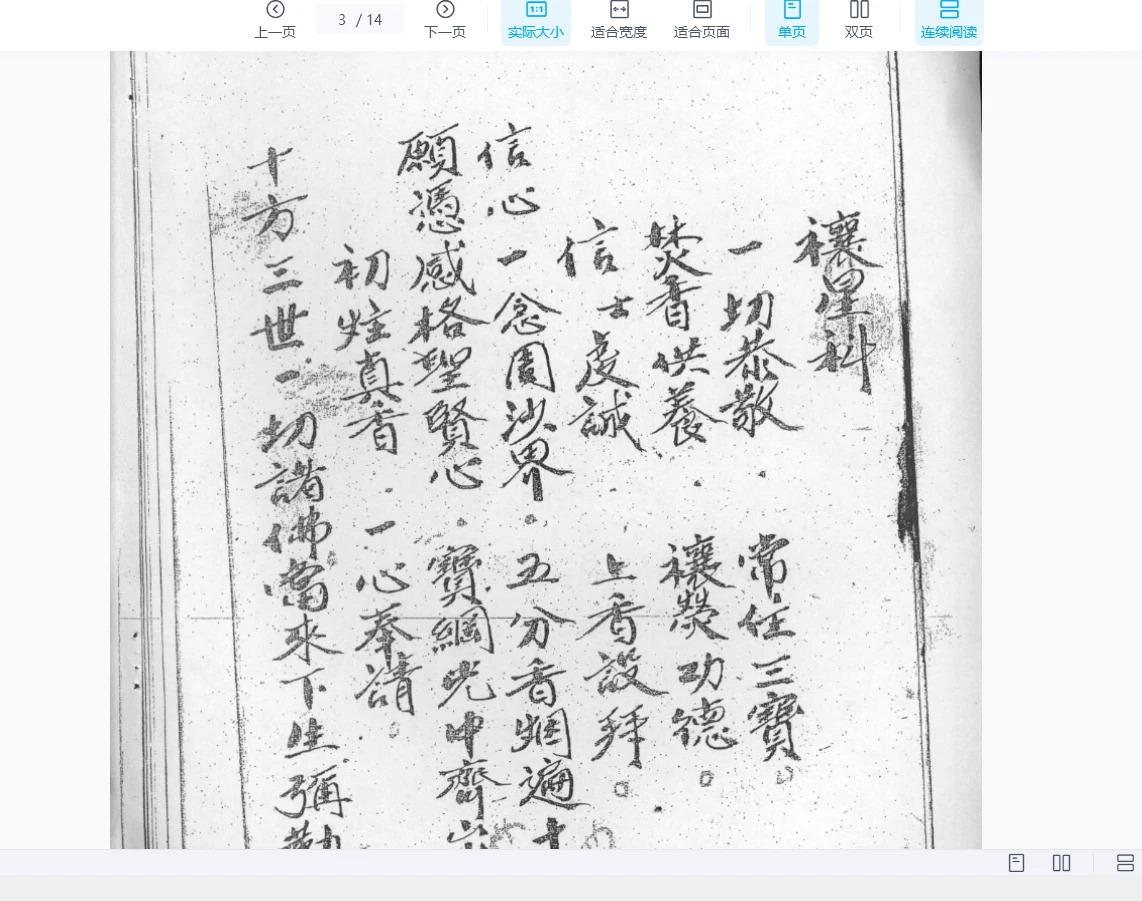 上一页 3 / 14 下一页 实际大小 适合宽度 适合页面 单页 双页 连续阅读
禳星科
一切恭敬 . 常住三寶。
焚香供養 . 禳熒功德。
信士虔誠 . 上香設拜。
信心一念周沙界 . 五分香烟遍十
願憑感格聖賢心 . 寶綱光中齊
初炷真香 . 一心奉請。
十方三世一切諸佛當來下生彌勒